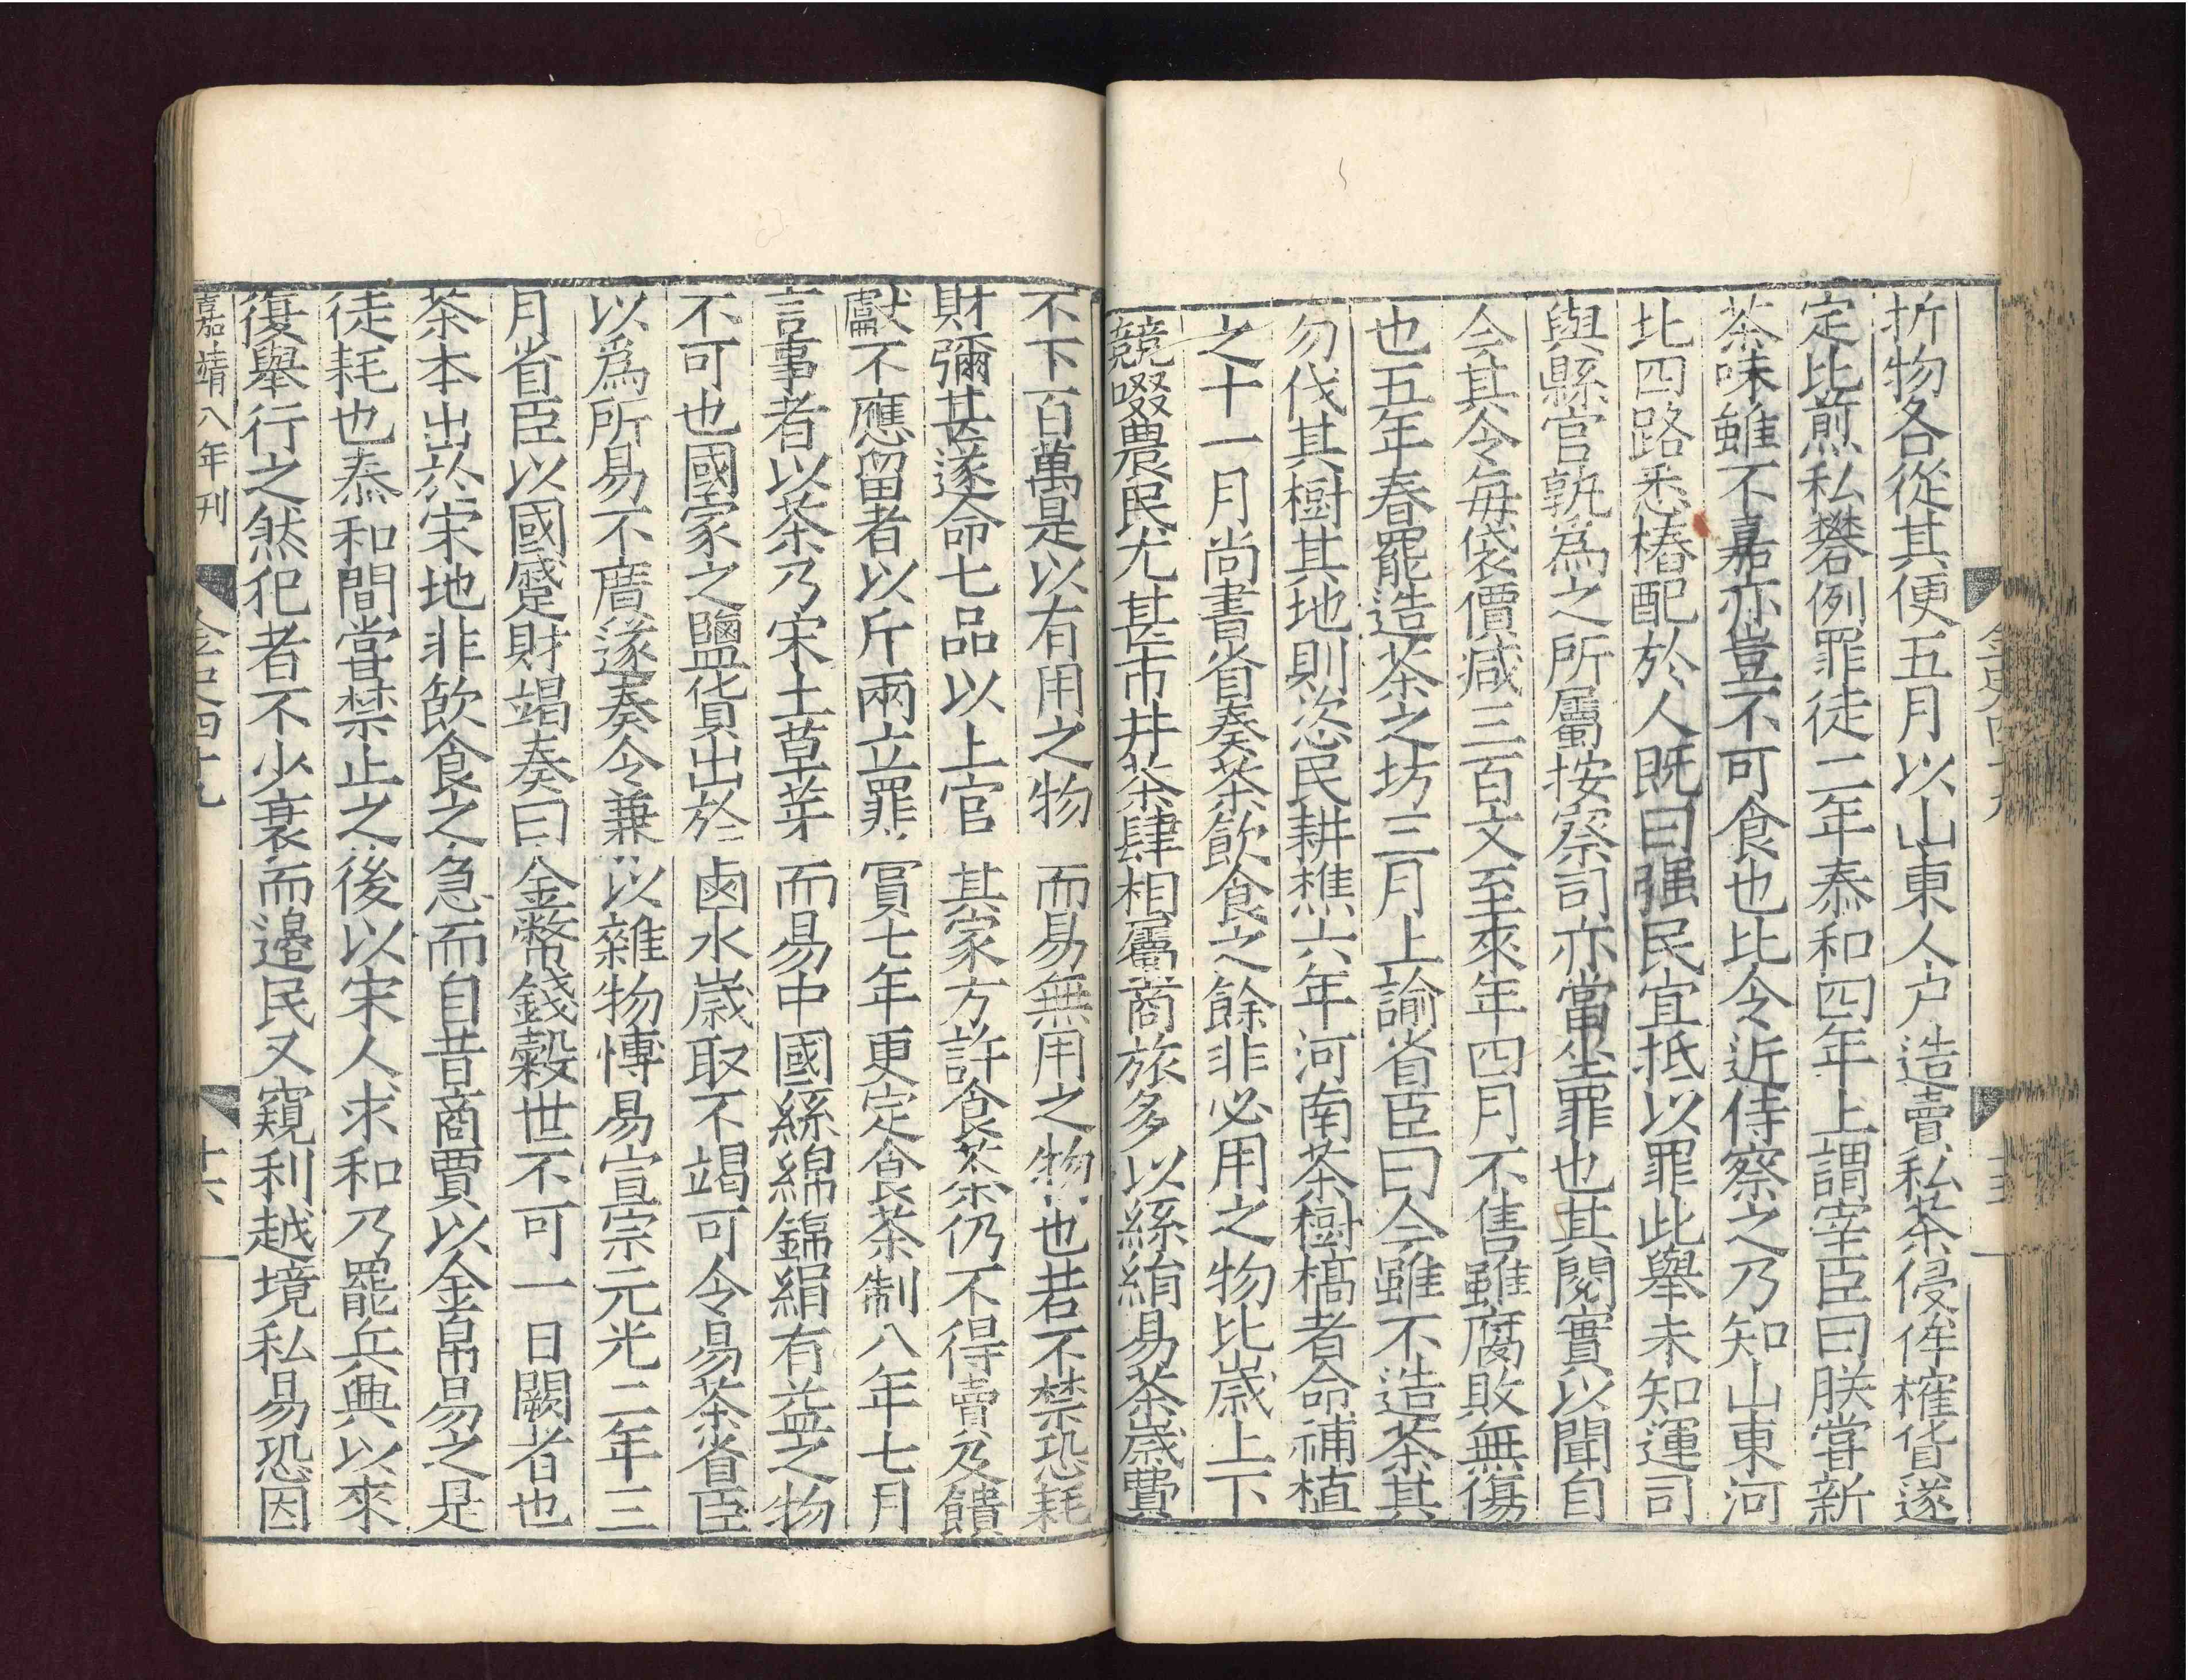 折物各從其便五月以山東人户造賣私茶侵侔榷貨遂
定比煎私礬例罪徒二年泰和四年上謂宰臣曰朕嘗新
茶味雖不嘉亦豈不可食也比令近侍察之乃知山東河
北四路悉樁配於人既曰强民宜抵以罪此舉未知運司
與縣官孰爲之所屬按察司亦當坐罪也其閱實以聞自
今其令每袋價减三百文至來年四月不售雖腐敗無傷
也五年春罷造茶之坊三月上諭省臣曰今雖不造茶其
勿伐其樹其地則恣民耕樵六年河南茶樹槁者命補植
之十一月尚書省奏茶飲食之餘非必用之物比歲上下
競啜農民尤甚市井茶肆相屬商旅多以絲絹易茶歲費
不下百萬是以有用之物而易無用之物也若不禁恐耗
財彌甚遂命七品以上官其家方許食茶仍不得賣及饋
獻不應留者以斤兩立罪賞七年更定食茶制八年七月
言事者以茶乃宋土草芽而易中國絲綿錦絹有益之物
不可也國家之鹽貨出於鹵水歲取不竭可令易茶省臣
以爲所易不廣遂奏令兼以雜物博易宣宗元光二年三
月省臣以國蹙財竭奏曰金幣錢穀世不可一日闕者也
茶本出於宋地非飲食之急而自昔商賈以金帛易之是
徒耗也泰和間嘗禁止之後以宋人求和乃罷兵興以來
復舉行之然犯者不少衰而邊民又窺利越境私易恐因
嘉靖八年刊 金史四十九 十六